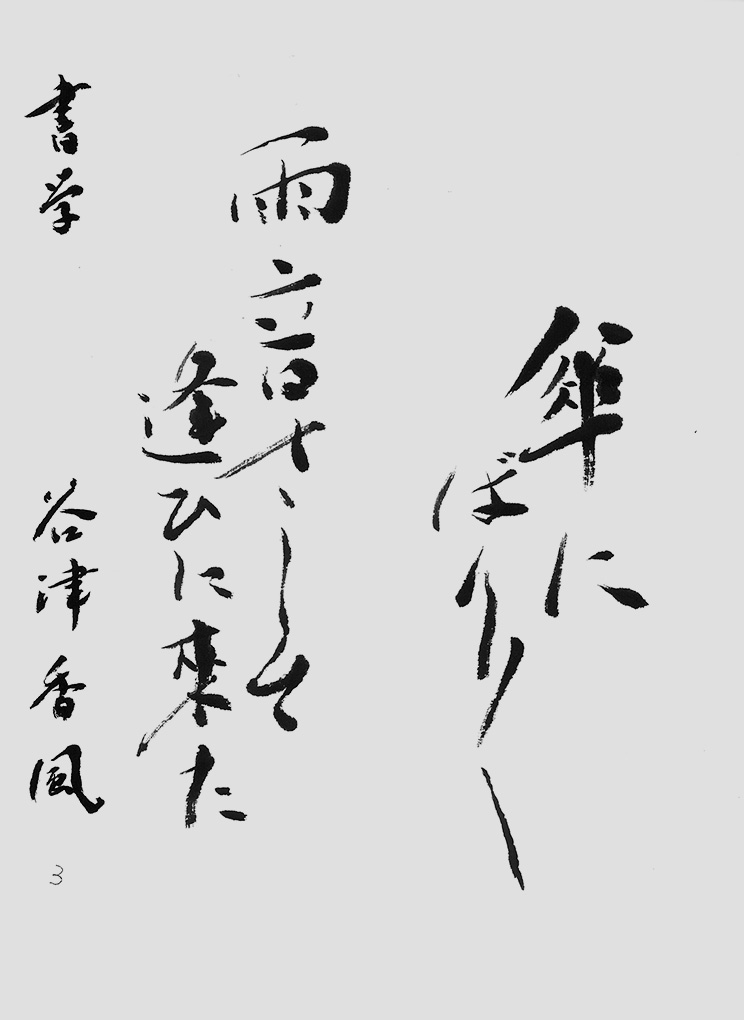 傘に
ばり〳〵
雨音さして
逢ひに来た
書学 谷津香風
3